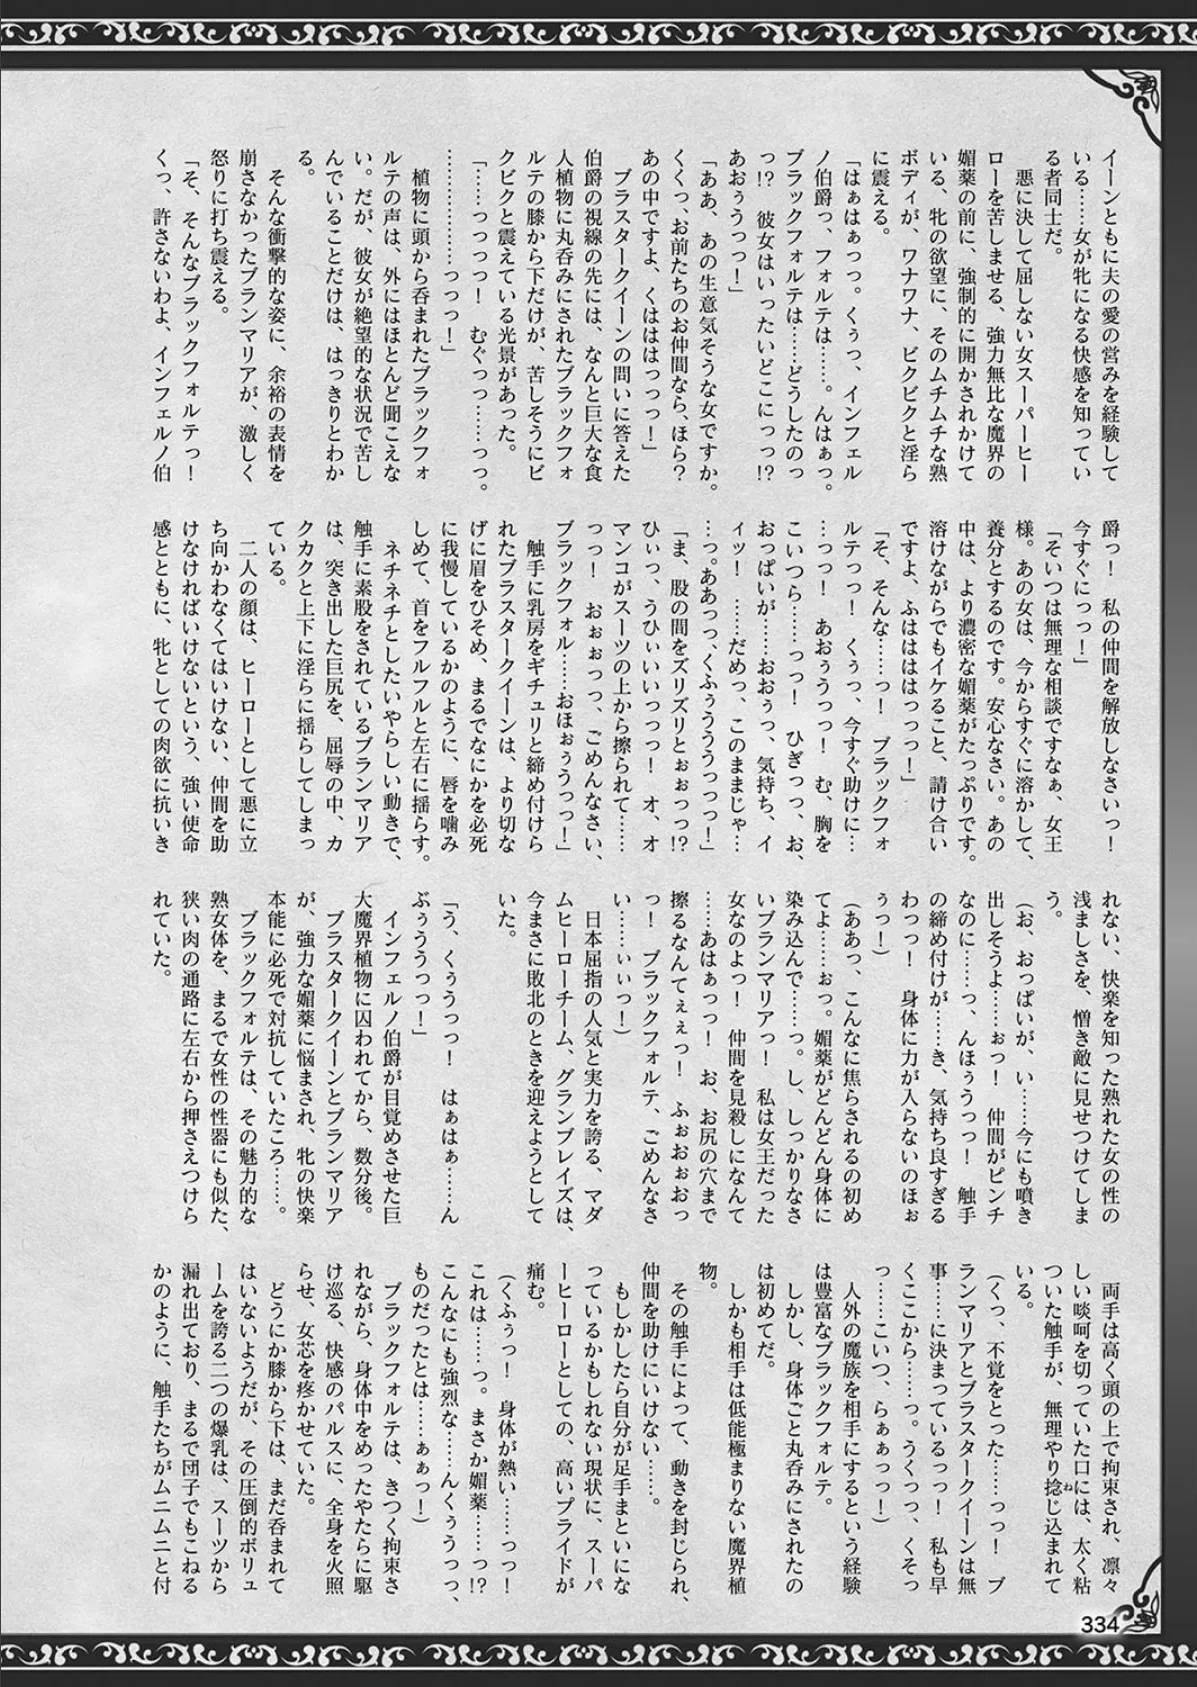 イーンともに夫の愛の営みを経験して
いる……女が牝になる快感を知ってい
る者同士だ。
悪に決して屈しない女スーパーヒー
ローを苦しませる、強力無比な魔界の
媚薬の前に、強制的に開かされかけて
いる、牝の欲望に、そのムチムチな熟
ボディが、ワナワナ、ビクビクと淫ら
に震える。
「はぁはぁっっ。くぅっ、インフェル
ノ伯爵っ、フォルテは……。んはぁっ。
ブラックフォルテは……どうしたのっ
っ!?　彼女はいったいどこにっっ!?
あおぅうっっ！」
「ああ、あの生意気そうな女ですか。
くくっ、お前たちのお仲間なら、ほら？
あの中ですよ、くはははっっっ！」
ブラスタークイーンの問いに答えた
伯爵の視線の先には、なんと巨大な食
人植物に丸呑みにされたブラックフォ
ルテの膝から下だけが、苦しそうにビ
クビクと震えている光景があった。
「……っっっっ！　むぐっっ……っっ。
……………っっっ！」
植物に頭から呑まれたブラックフォ
ルテの声は、外にはほとんど聞こえな
い。だが、彼女が絶望的な状況で苦し
んでいることだけは、はっきりとわか
る。
そんな衝撃的な姿に、余裕の表情を
崩さなかったブランマリアが、激しく
怒りに打ち震える。
「そ、そんなブラックフォルテっ！
くっ、許さないわよ、インフェルノ伯
爵っ！　私の仲間を解放しなさいっ！
今すぐにっっ！」
「そいつは無理な相談ですなぁ、女王
様。あの女は、今からすぐに溶かして、
養分とするのです。安心なさい。あの
中は、より濃密な媚薬がたっぷりです。
溶けながらでもイケること、請け合い
ですよ、ふははははっっっ！」
「そ、そんな……っ！　ブラックフォ
ルテっっ！　くぅっ、今すぐ助けに…
…っっ！　あおぅうっっ！　む、胸を
こいつら……っっ！　ひぎっっ、お、
おっぱいが……おおぅっ、気持ち、イ
ィッ！　……だめっ、このままじゃ…
…っ。ああっっ、くふぅうううっっっ！」
「ま、股の間をズリズリとぉぉっっ!?
ひぃっ、うひぃいいっっっ！　オ、オ
マンコがスーツの上から擦られて……
っっ！　おぉぉっっ、ごめんなさい、
ブラックフォル……おほぉぅうっっ！」
触手に乳房をギチュリと締め付けら
れたブラスタークイーンは、より切な
げに眉をひそめ、まるでなにかを必死
に我慢しているかのように、唇を噛み
しめて、首をフルフルと左右に揺らす。
ネチネチとしたいやらしい動きで、
触手に素股をされているブランマリア
は、突き出した巨尻を、屈辱の中、カ
クカクと上下に淫らに揺らしてしまっ
ている。
二人の顔は、ヒーローとして悪に立
ち向かわなくてはいけない、仲間を助
けなければいけないという、強い使命
感とともに、牝としての肉欲に抗いき
れない、快楽を知った熟れた女の性の
浅ましさを、憎き敵に見せつけてしま
う。
（お、おっぱいが、い……今にも噴き
出しそうよ……ぉっ！　仲間がピンチ
なのに……っ、んほぅうっっ！　触手
の締め付けが……き、気持ち良すぎる
わっっ！　身体に力が入らないのほぉ
ぅっ！）
（ああっ、こんなに焦らされるの初め
てよ……ぉっ。媚薬がどんどん身体に
染み込んで……っ。し、しっかりなさ
いブランマリアっ！　私は女王だった
女なのよっ！　仲間を見殺しになんて
……あはぁっっ！　お、お尻の穴まで
擦るなんてぇぇっ！　ふぉおぉおっ
っ！　ブラックフォルテ、ごめんなさ
い……いぃっ！）
日本屈指の人気と実力を誇る、マダ
ムヒーローチーム、グランブレイズは、
今まさに敗北のときを迎えようとして
いた。
「う、くぅうっっ！　はぁはぁ……ん
ぶぅううっっ！」
インフェルノ伯爵が目覚めさせた巨
大魔界植物に囚われてから、数分後。
ブラスタークイーンとブランマリア
が、強力な媚薬に悩まされ、牝の快楽
本能に必死で対抗していたころ……。
ブラックフォルテは、その魅力的な
熟女体を、まるで女性の性器にも似た、
狭い肉の通路に左右から押さえつけら
れていた。
両手は高く頭の上で拘束され、凛々
しい啖呵を切っていた口には、太く粘
ついた触手が、無理やり捻じ込まれて
いる。
（くっ、不覚をとった……っっ！　ブ
ランマリアとブラスタークイーンは無
事……に決まっているっっ！　私も早
くここから……っ。うくっっ、くそっ
っ……こいつ、らぁぁっっ！）
人外の魔族を相手にするという経験
は豊富なブラックフォルテ。
しかし、身体ごと丸呑みにされたの
は初めてだ。
しかも相手は低能極まりない魔界植
物。
その触手によって、動きを封じられ、
仲間を助けにいけない……。
もしかしたら自分が足手まといにな
っているかもしれない現状に、スーパ
ーヒーローとしての、高いプライドが
痛む。
（くふぅっ！　身体が熱い……っっ！
これは……っ。まさか媚薬……っ!?
こんなにも強烈な……んくぅうっっ、
ものだったとは……ぁぁっ！）
ブラックフォルテは、きつく拘束さ
れながら、身体中をめったやたらに駆
け巡る、快感のパルスに、全身を火照
らせ、女芯を疼かせていた。
どうにか膝から下は、まだ呑まれて
はいないようだが、その圧倒的ボリュ
ームを誇る二つの爆乳は、スーツから
漏れ出ており、まるで団子でもこねる
かのように、触手たちがムニムニと付
334